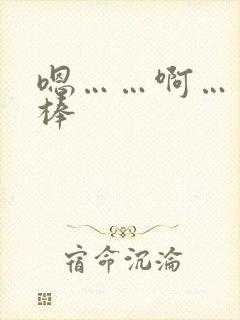 嗯……啊…
棒
宿命沉沦